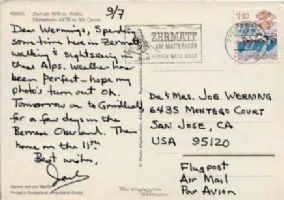 42900 Zermatt 1616 m, Wallis
Matterhorn 4478 m, Mt. Cervin
9/7
Dear Wernings, Spending
some time here in Zermatt,
walking & sightseeing in
these Alps. Weather has
been perfect - hope my
photo's turn out OK.
Tomorrow on to Grindelwald
for a few days in the
Bernese Oberland. Then
home on the 11th.
Best wishes,
ZERMATT
AM MATTERHORN
Dr. & Mrs. Joe Werning
6435 Montego Court
San Jose, CA
USA 95120
Flugpost
Air Mail
Par Avion
Printed in Switzerland